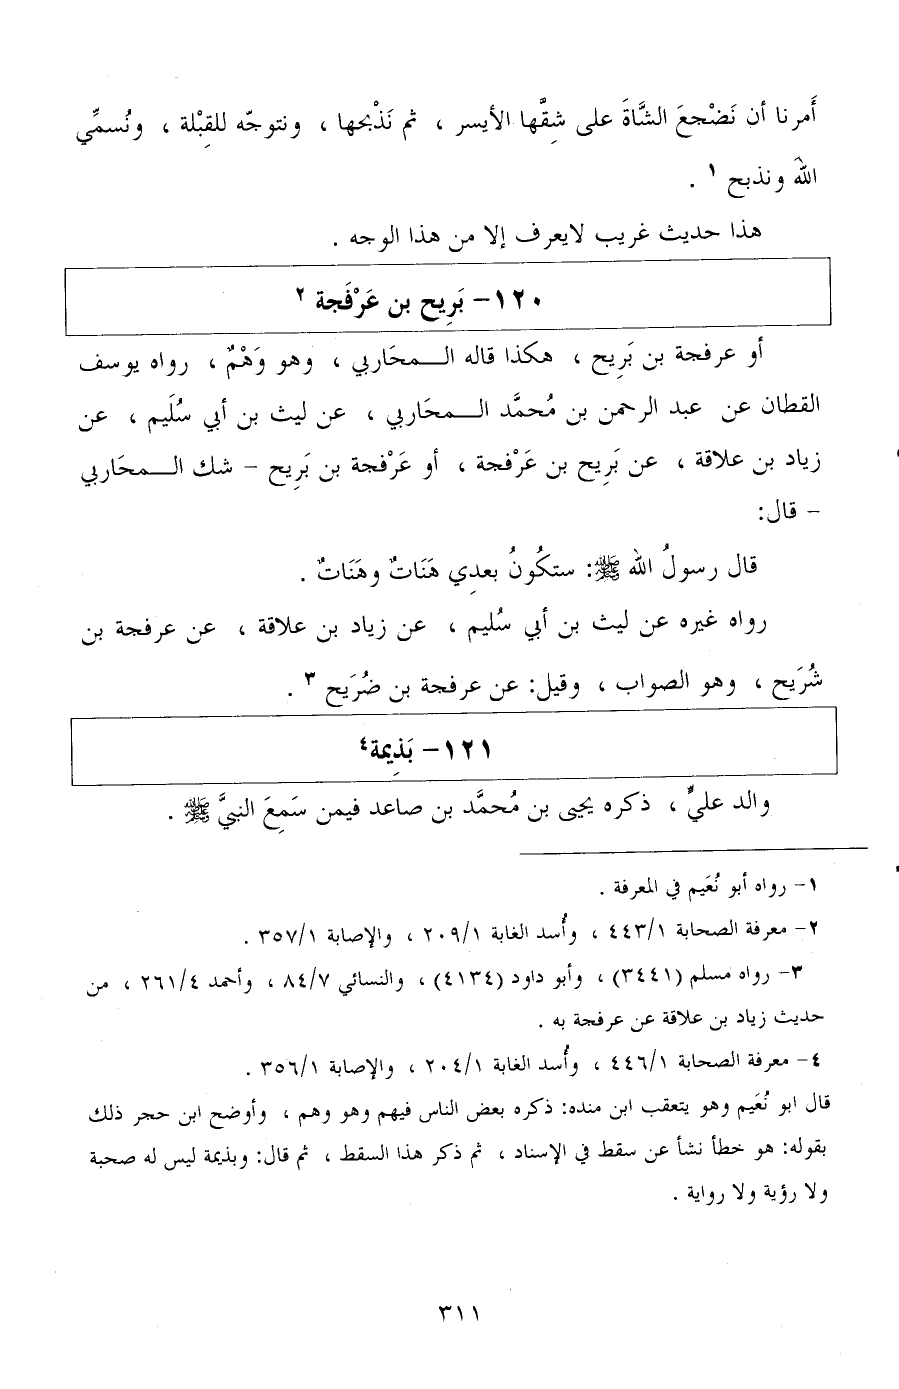 أَمرنا أن نَضْجعَ الشَّاةَ على شِقَّها الأيسر ، ثم نَذْبحها ، ونتوجّه للقِبْلة ، ونُسمِّي
اللهَ ونذبح ١ .
هذا حديث غريب لايعرف إلا من هذا الوجه .
١٢٠- بَرِيح بن عَرْفَجة ٢
أو عرفجة بن بَرِيح ، هكذا قاله الـمحَاربي ، وهو وَهْمٌ ، رواه يوسف
القطان عن عبد الرحمن بن مُحمَّد الـمحَاربي ، عن ليث بن أبي سُلَيم ، عن
زياد بن علاقة ، عن بَرِيح بن عَرْفجة ، أو عَرْفجة بن بَرِيح - شك الـمحَاربي
- قال:
قال رسولُ الله ﷺ: ستكُونُ بعدِي هَنَاتٌ وهَنَاتٌ .
رواه غيره عن ليث بن أبي سُليم ، عن زياد بن علاقة ، عن عرفجة بن
شُرَيح ، وهو الصواب ، وقيل: عن عرفجة بن ضُرَيح ٣ .
١٢١- بَذِيمة٤
والد عليٍّ ، ذكره يحيى بن مُحمَّد بن صاعد فيمن سَمِعَ النبيَّ ﷺ .
١- رواه أبو نُعَيم في المعرفة .
٢- معرفة الصحابة ٤٤٣/١ ، وأُسد الغابة ٢٠٩/١ ، والإصابة ٣٥٧/١ .
٣- رواه مسلم (٣٤٤١) ، وأبو داود (٤١٣٤) ، والنسائي ٨٤/٧ ، وأحمد ٢٦١/٤ ، من
حديث زياد بن علاقة عن عرفجة به .
٤- معرفة الصحابة ٤٤٦/١ ، وأُسد الغابة ٢٠٤/١ ، والإصابة ٣٥٦/١ .
قال ابو نُعَيم وهو يتعقب ابن منده: ذكره بعض الناس فيهم وهو وهم ، وأوضح ابن حجر ذلك
بقوله: هو خطأ نشأ عن سقط في الإسناد ، ثم ذكر هذا السقط ، ثم قال: وبذيمة ليس له صحبة
ولا رؤية ولا رواية .
٣١١